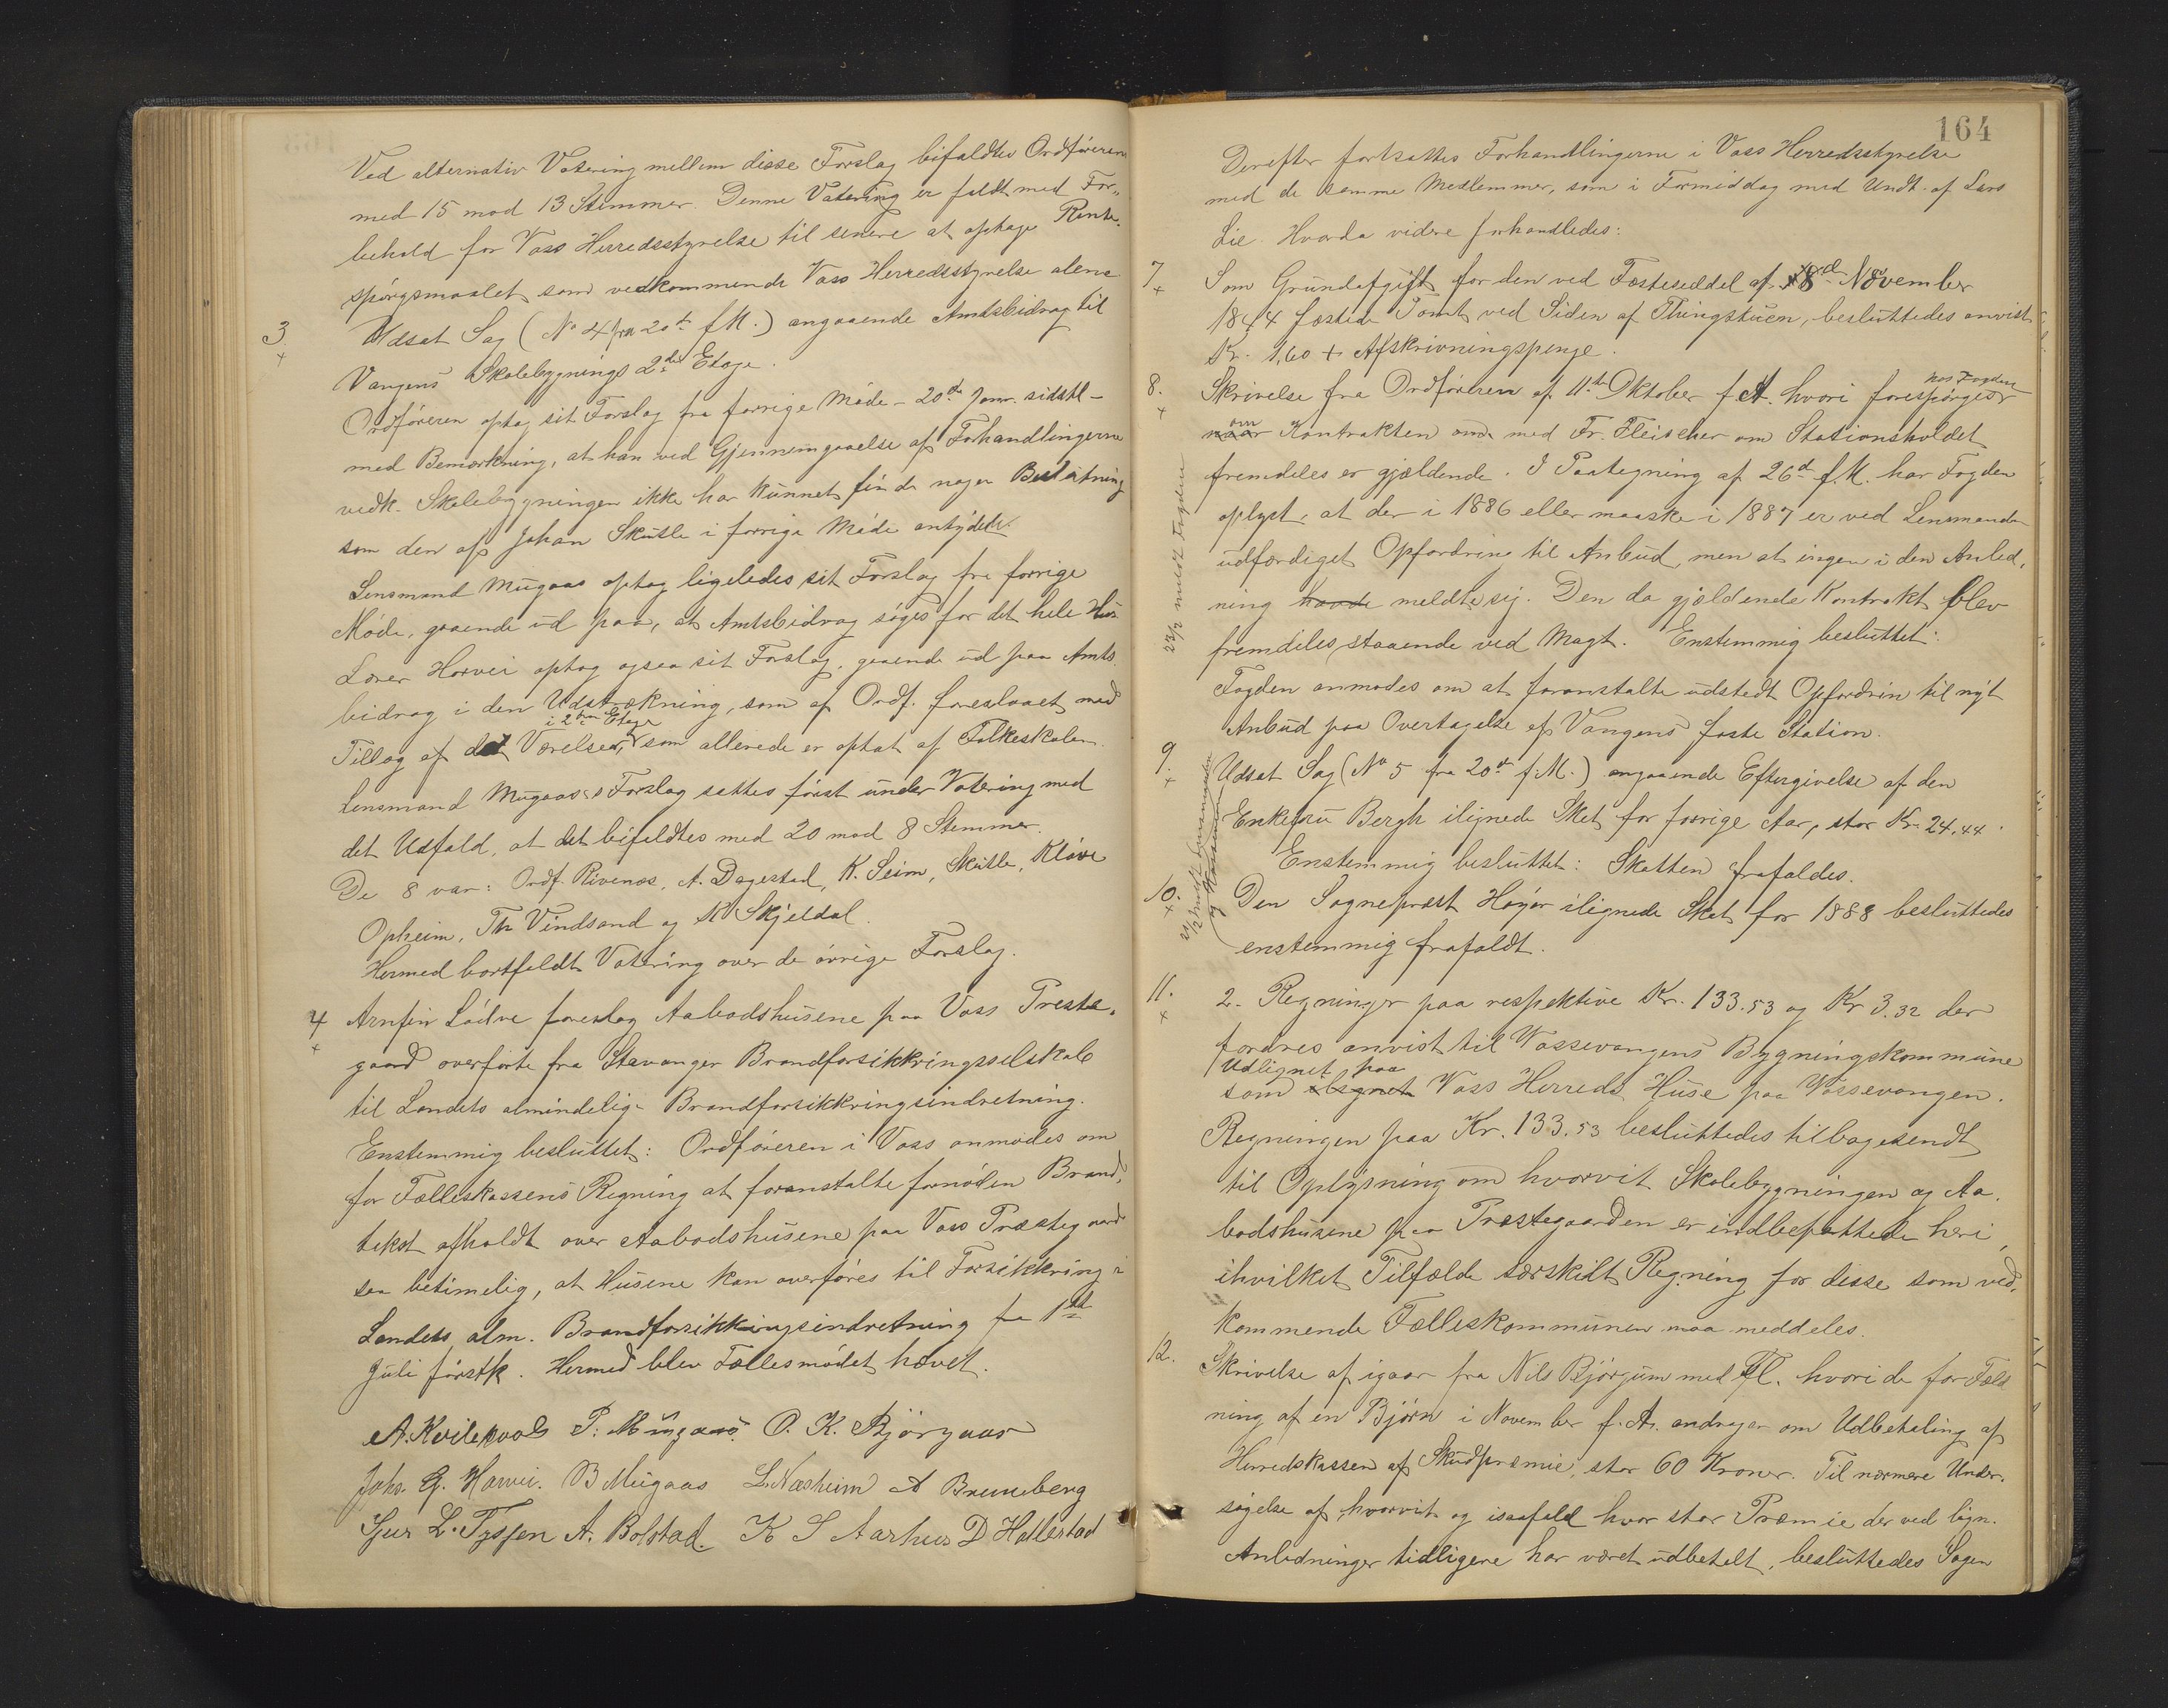 Ved alternativ Votering mellem disse Forslag bifaldtes Ordførerens
med 15 mod 13 Stemmer. Denne Votering er faldt med For-
behold for Voss Herredsstyrelse til senere at optage Rente-
spørgsmaalet som vedkommende Voss Herredsstyrelse alene
3. Udsat Sag (No 4 fra 20de f. M.) angaaende Amtsbidrag til
Vangens Skolebygnings 2den Etage.
Ordføreren optog sit Forslag fra forrige Møde - 20de Janr. sidstl -
med Bemærkning, at han ved Gjennemgaaelse af Forhandlingerne
vedk. Skolebygningen ikke har kunnet finde nogen Beslutning
som den af Johan Skutle i forrige Møde antydede.
Lensmand Mugaas optog ligeledes sit Forslag fra forrige
Møde, gaaende ud paa, at Amtsbidrag søges for det hele Hus
Lærer Horvei optog ogsaa sit Forslag, gaaende ud paa Amts-
bidrag i den Udstrækning, som af Ordf. foreslaaet med
i 2den Etage
Tillæg af det Værelse, som allerede er optat af Folkeskolen.
Lensmand Mugaas's Forslag sattes først under Votering med
det Udfald, at det bifaldtes med 20 mod 8 Stemmer.
De 8 var: Ordf. Rivenæs, A. Dagestad, K. Seim, Skutle, Kløve
Opheim, Th Vindsand og K Skjeldal.
Hermed bortfaldt Votering over de øvrige Forslag.
4 Arnfin Lødve foreslog Aabodshusene paa Voss Preste-
gaard overførte fra Stavanger Brandforsikkringsselskab
til Landets almindelige Brandforsikkringsindretning.
Enstemmig besluttet: Ordføreren i Voss anmodes om
for Fælleskassens Regning at foranstalte fornøden Brand-
takst afholdt over Aabodshusene paa Voss Præstegaard
saa betimelig, at Husene kan overføres til Forsikkring i
Landets alm. Brandforsikkringsindretning fra 1ste
Juli førstk. Hermed blev Fællesmødet hævet.
A. Kvilekvaal P. Mugaas. O. K. Bjørgaas
Johs. G. Horvei. B Mugaas L. Næsheim A Bruneberg
Sjur L. Tyssen A. Bolstad. K S Aarhus D Hallestad
164
Derefter fortsattes Forhandlingerne i Voss Herredsstyrelse
med de samme Medlemmer, som i Formiddag med Undt. af Lars
Lie. Hvorda videre forhandledes:
7 Som Grundafgift for den ved Fæsteseddel af 8de November
1844 fæstede Tomt ved Siden af Thingstuen, besluttedes anvist
Kr. 1,60 + Afskrivningspenge.
hos Fogden
8. Skrivelse fra Ordføreren af 11te Oktober f. A. hvori forespørges
om
naar Kontrakten om med Fr. Fleischer om Stationsholdet
fremdeles er gjældende. I Paategning af 26de f. M. har Fogden
oplyst, at der i 1886 eller maaske i 1887 er ved Lensmanden
udfærdiget Opfordring til Anbud, men at ingen i den Anled-
ning havde meldte sig. Den da gjældende Kontrakt blev
fremdeles staaende ved Magt. Enstemmig besluttet:
Fogden anmodes om at foranstalte udstedt Opfordrin til nyt
Anbud paa Overtagelse af Vangens faste Station.
23/2 meldt Fogden
9. Udsat Sag (No 5 fra 20de f. M.) angaaende Eftergivelse af den
Enkefru Bergh ilignede Skat for forrige Aar, stor Kr. 24,44.
Enstemmig besluttet: Skatten frafaldes.
10. Den Sognepræst Høyer ilignede Skat for 1888 besluttedes
enstemmig frafaldt.
11. 2. Regninger paa respektive Kr. 133.53 og Kr 3.32 der
fordres anvist til Vossevangens Bygningskommune
Udlignet paa
som Voss Herreds Huse paa Vossevangen.
Regningen paa Kr. 133.53 besluttedes tilbagesendt
til Oplysning om hvorvit Skolebygningen og Aa-
bodshusene paa Præstegaarden er indbefattede heri,
ihvilket Tilfælde særskilt Regning for disse som ved-
kommende Fælleskommunen maa meddeles.
12. Skrivelse af igaar fra Nils Bjørgum med Fl. hvori de for Fæld
ning af en Bjørn i November f. A. andrager om Udbetaling af
Herredskassen af Skudpræmie, stor 60 Kroner. Til nærmere Under-
søgelse af, hvorvit og isaafald hvor stor Præmie der ved lign.
Anledninger tidligere har været udbetalt, besluttedes Sagen